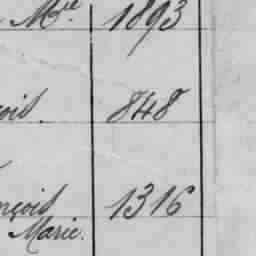 Mie 1893
ois. 848
nçois 1316
Marie.